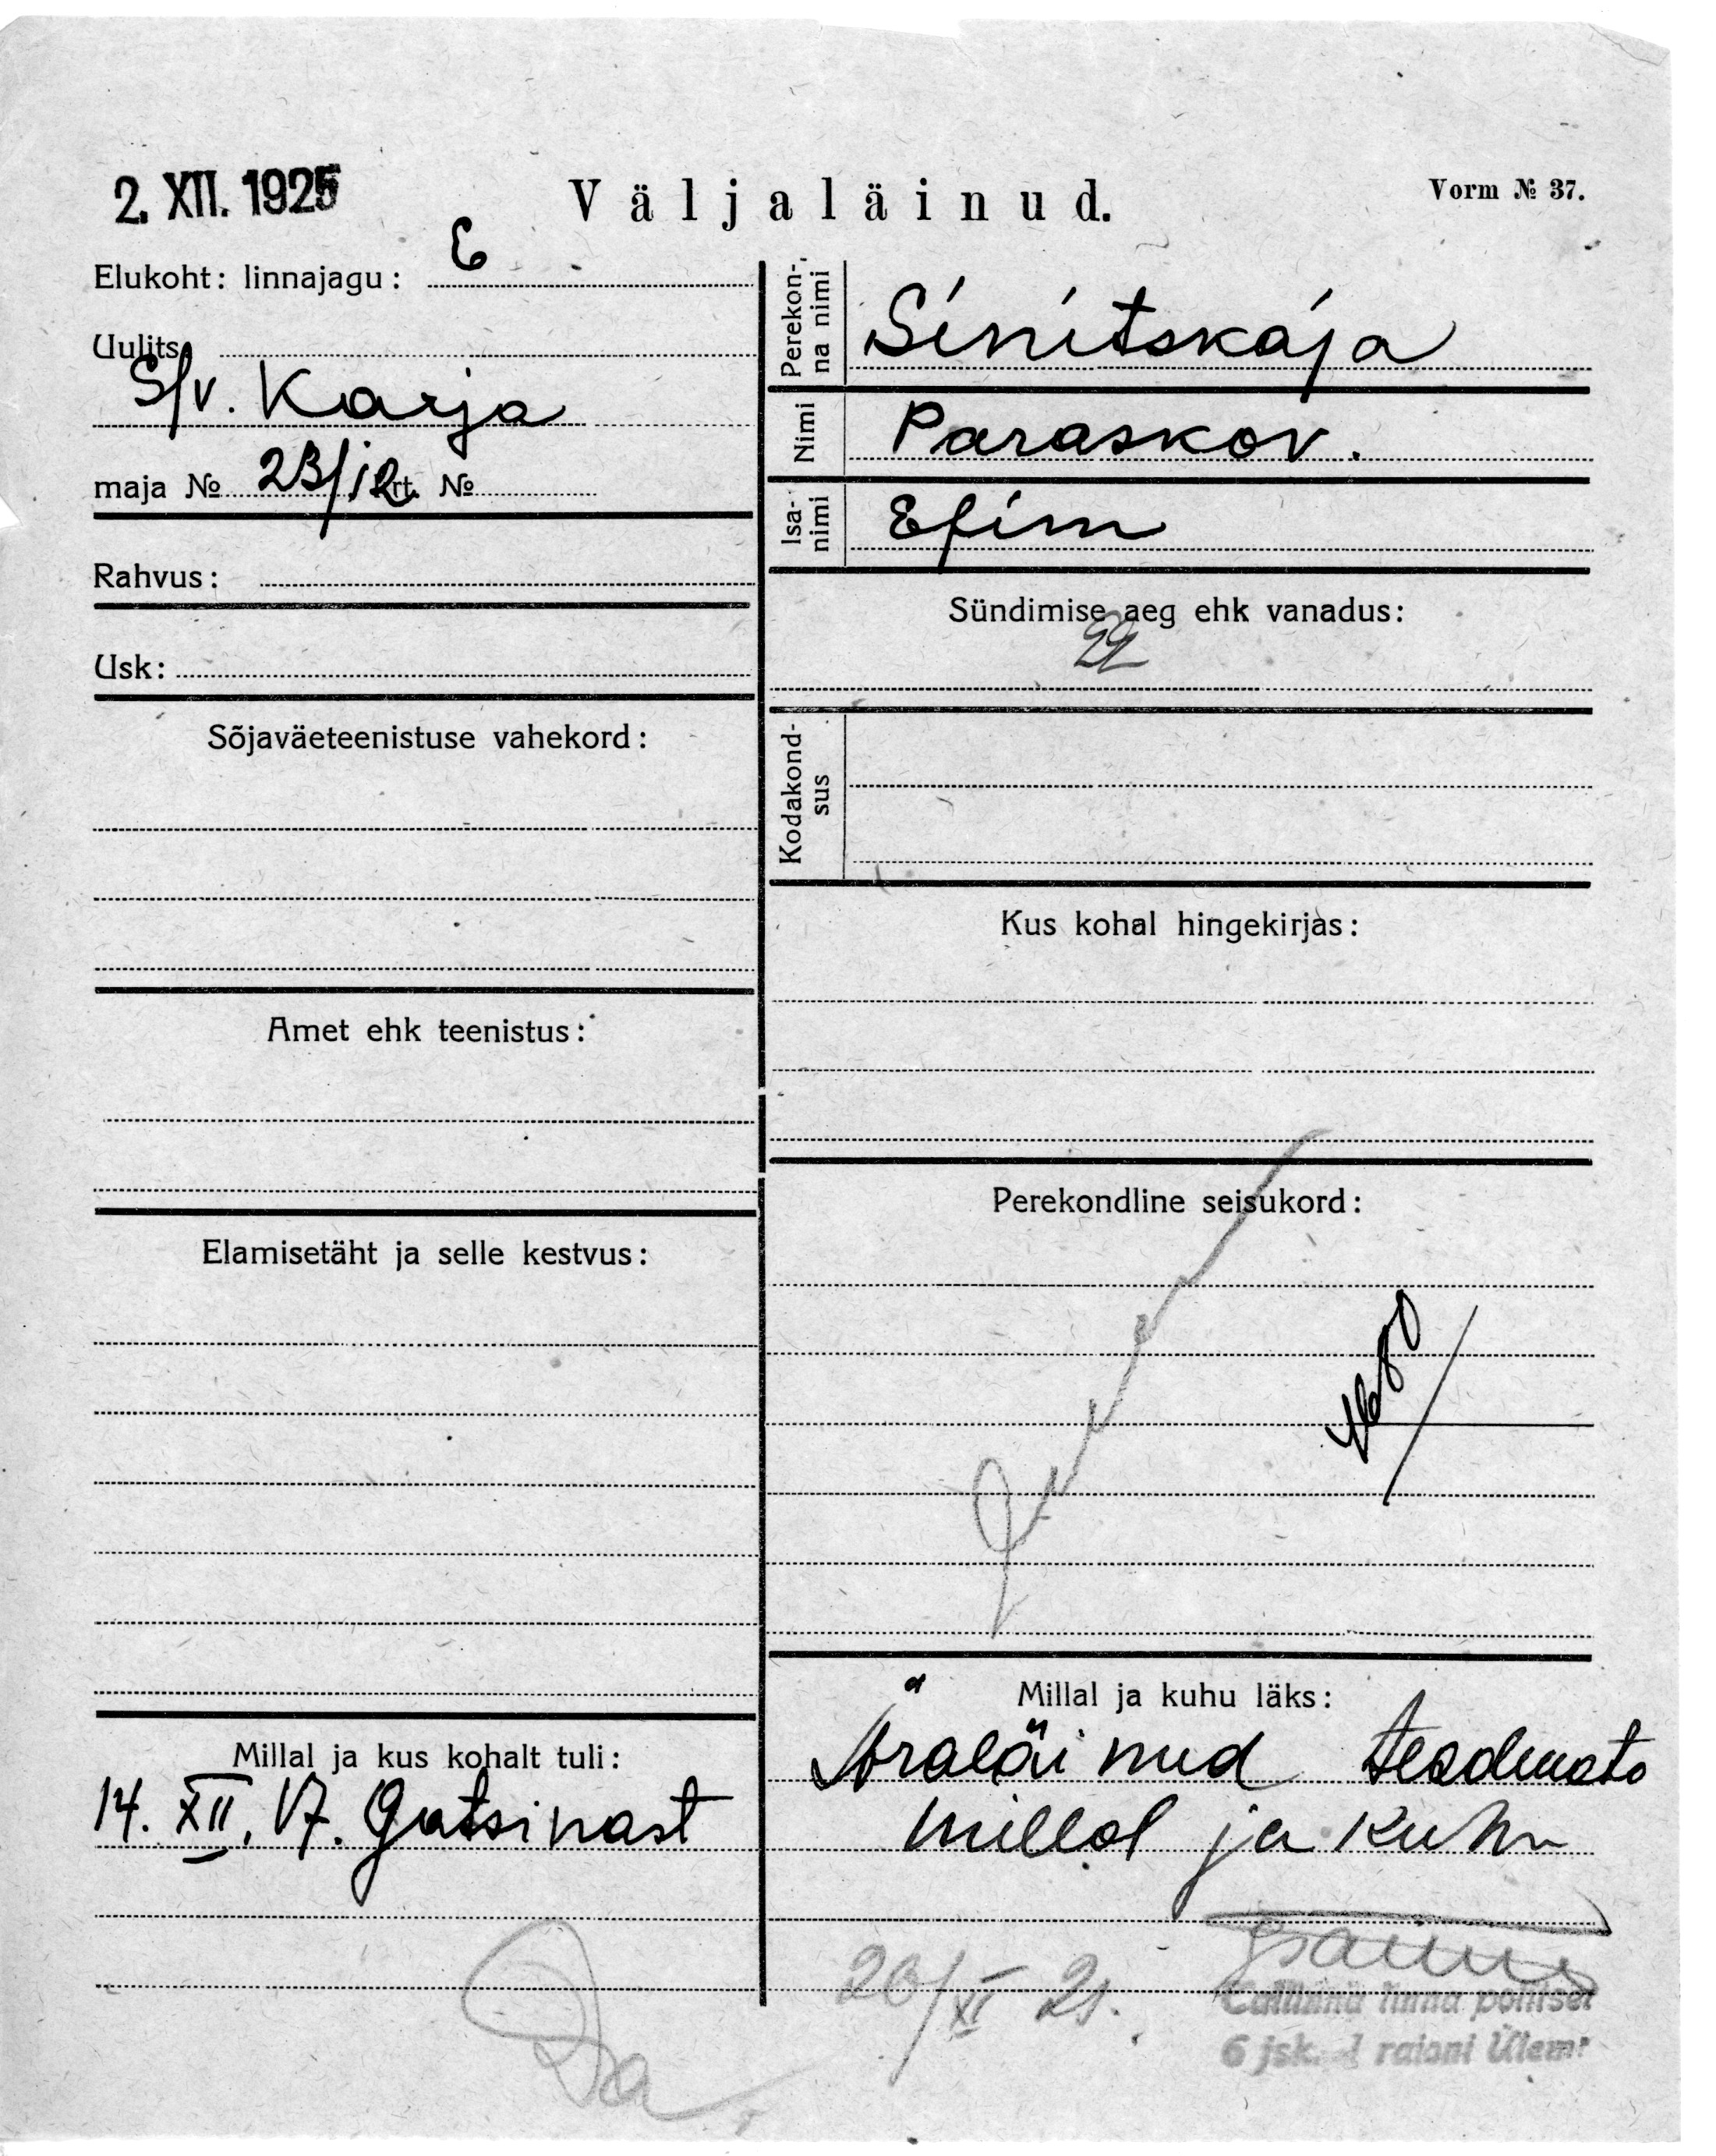 2. XII. 1925
Väljaläinud.
Vorm № 37.
Elukoht: linnajagu: 6
Uulits
S/v. Karja
maja № 23/12 krt. №
Rahvus:
Usk:
Sõjaväeteenistuse vahekord:
Amet ehk teenistus:
Elamisetäht ja selle kestvus:
Millal ja kus kohalt tuli:
14. XII. 17. Gatsinast
Perekon-
na nimi
Sinitskaja
Nimi
Paraskov.
Isa-
nimi
Efim
Sündimise aeg ehk vanadus:
22
Kodakond-
sus
Kus kohal hingekirjas:
Perekondline seisukord:
Millal ja kuhu läks:
Äraläinud teadmata
millal ja kuhu
20/XI 21.
Tallinna linna politsei
6 jsk. 1 raioni Ülem